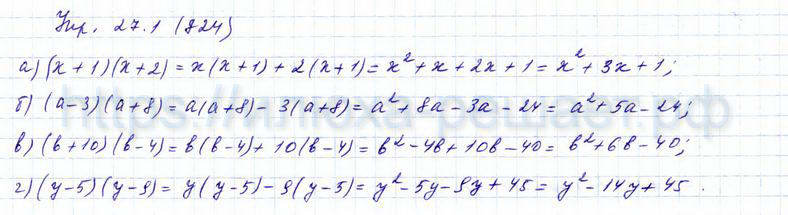 Упр. 27.1 (824)
а) (x + 1) (x + 2) = x (x + 1) + 2 (x + 1) = x² + x + 2x + 1 = x² + 3x + 1;
б) (a - 3) (a + 8) = a (a + 8) - 3 (a + 8) = a² + 8a - 3a - 24 = a² + 5a - 24;
в) (b + 10) (b - 4) = b (b - 4) + 10 (b - 4) = b² - 4b + 10b - 40 = b² + 6b - 40;
г) (y - 5) (y - 9) = y (y - 5) - 9 (y - 5) = y² - 5y - 9y + 45 = y² - 14y + 45.